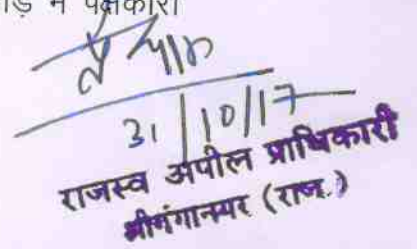 में पक्षकारों
31/10/17
राजस्व अपील प्राधिकारी
श्रीगंगानगर (राज.)